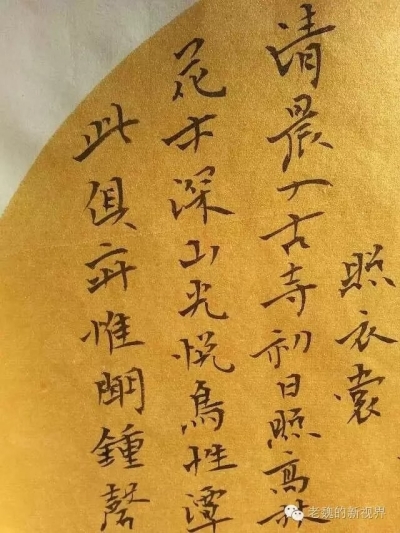 照衣裳
清晨入古寺初日照高林
花木深山光悦鳥性潭
此俱寂惟聞鍾磬
老魏的新视界